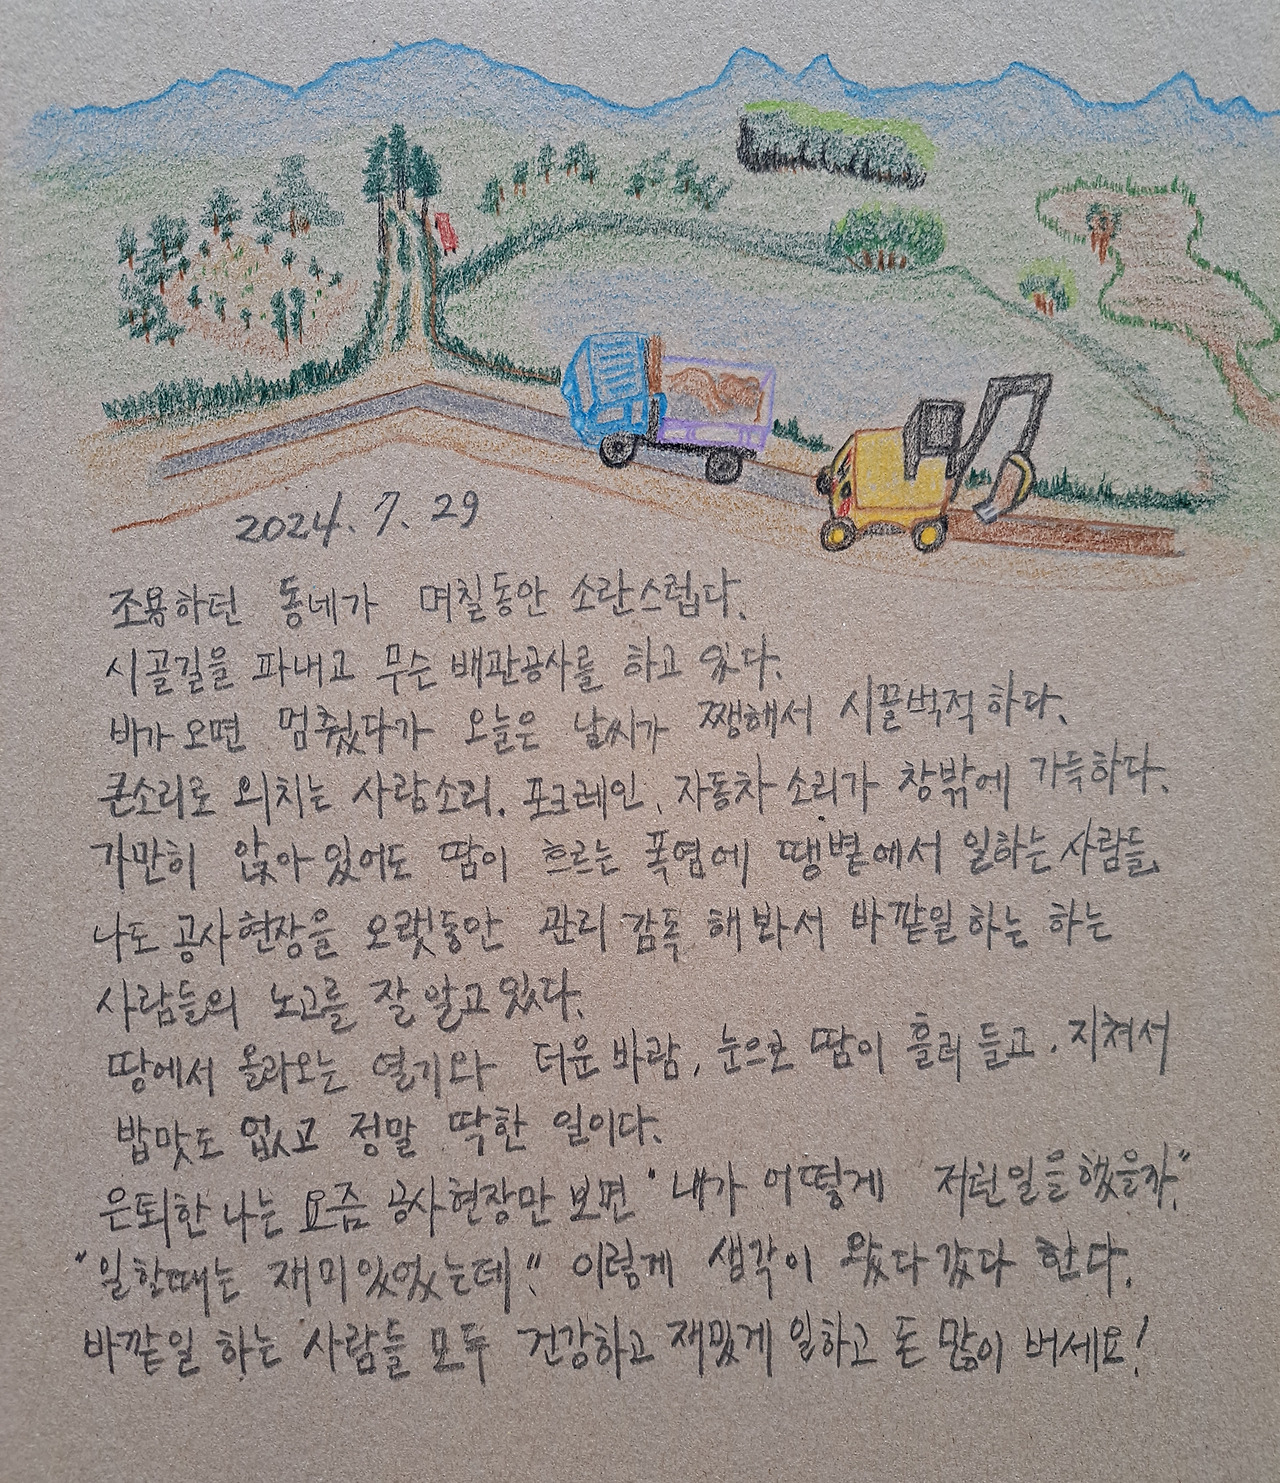 2024. 7. 29
조용하던 동네가 며칠동안 소란스럽다.
시골길을 파내고 무슨 배관공사를 하고 있다.
비가 오면 멈췄다가 오늘은 날씨가 쨍해서 시끌벅적하다.
큰소리로 외치는 사람소리. 포크레인. 자동차 소리가 창밖에 가득하다.
가만히 앉아 있어도 땀이 흐르는 폭염에 땡볕에서 일하는 사람들.
나도 공사현장을 오랫동안 관리 감독 해 봐서 바깥일 하는 하는
사람들의 노고를 잘 알고 있다.
땅에서 올라오는 열기와 더운 바람, 눈으로 땀이 흘러 들고. 지쳐서
밥맛도 없고 정말 딱한 일이다.
은퇴한 나는 요즘 공사현장만 보면 "내가 어떻게 저런일을 했을까."
"일할때는 재미있었는데!" 이렇게 생각이 왔다 갔다 한다.
바깥일 하는 사람들 모두 건강하고 재밌게 일하고 돈 많이 버세요!